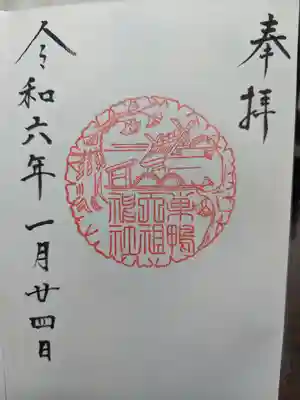 奉拝
巣鴨
大祖
神社
令和六年一月廿四日